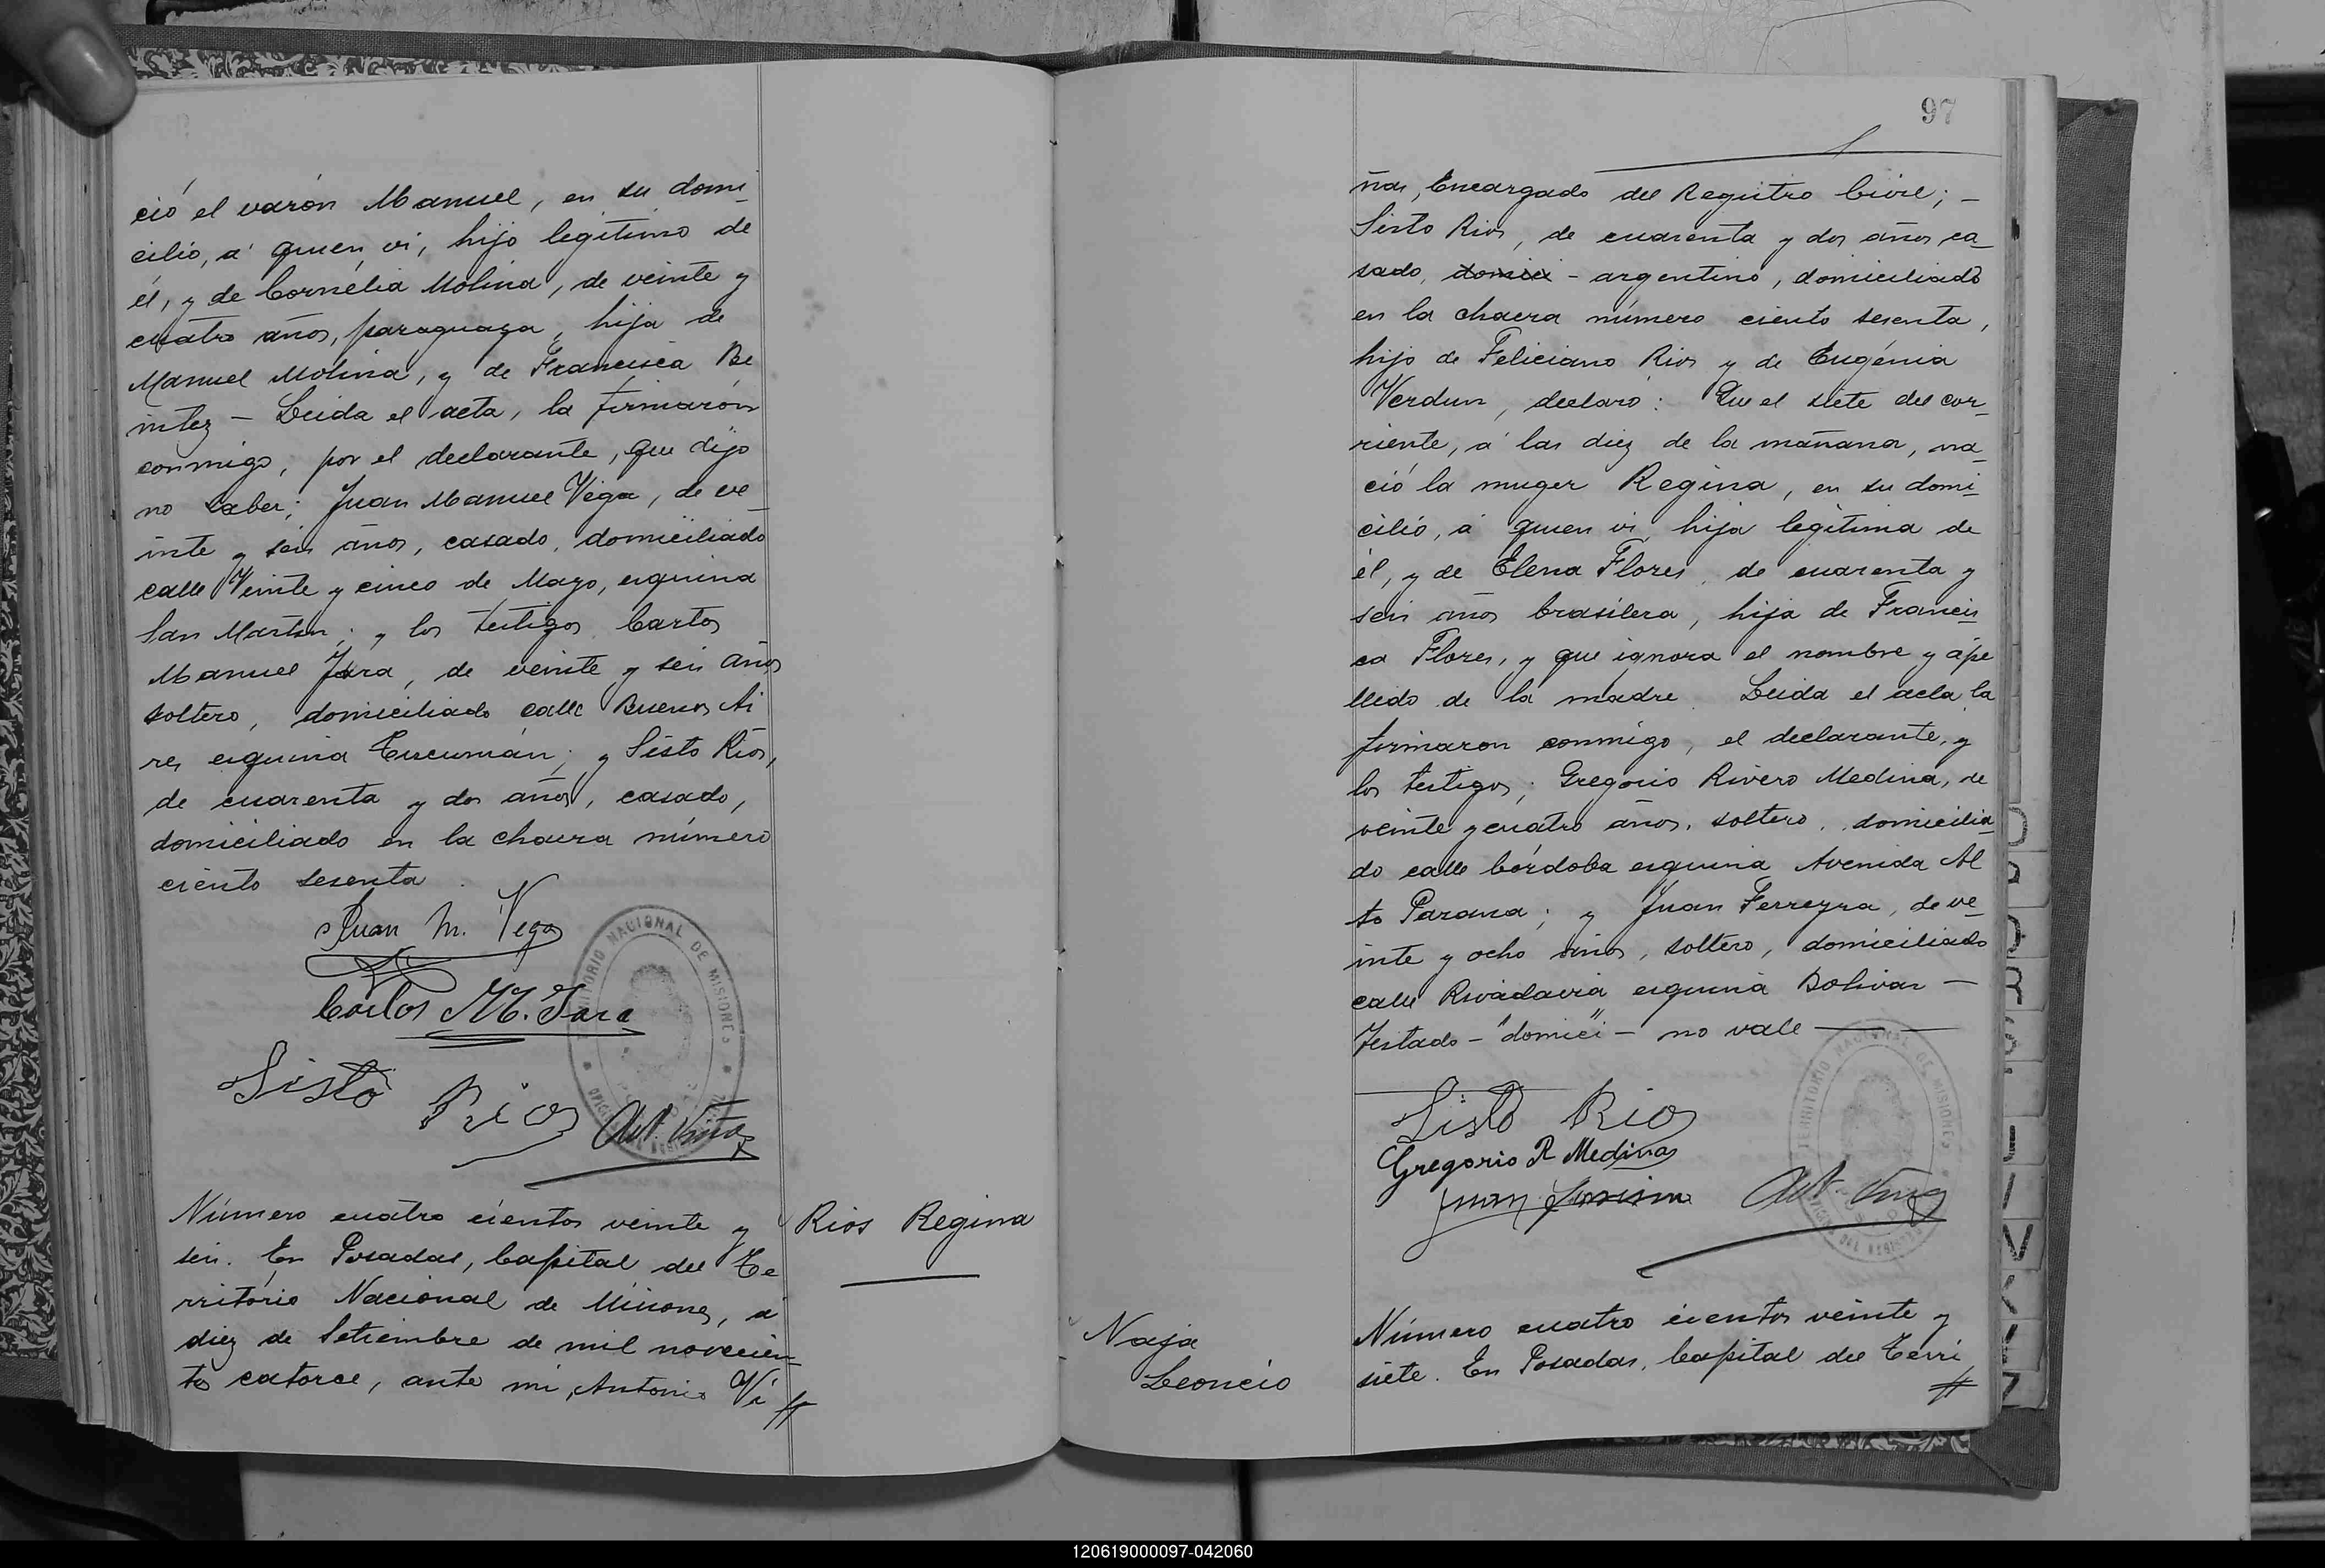 ció el varón Manuel, en su domi_
cilio, á quien vi, hijo legitimo de
él, y de Cornélia Molina, de veinte y
cuatro años, paraguaya, hija de
Manuel Molina, y de Francisca Be
nitez - Leida el acta, la firmarón
conmigo, por el declarante, que dijo
no saber; Juan Manuel Vega, de ve_
inte y seis años, casado, domiciliado
calle Veinte y cinco de Mayo, esquina
San Martin; y los testigos Carlos
Manuel Jara, de veinte y seis años
soltero, domiciliado calle Buenos Ai
res esquina Tucumán; y Sisto Rios,
de cuarenta y dos años, casado,
domiciliado en la chacra número
ciento sesenta.
Juan M. Vega
Carlos M. Jara
Sisto Rios
Ant. Viñas
TERRITORIO NACIONAL DE MISIONES
Número cuatro cientos veinte y
seis. En Posadas, Capital del Te
rritório Nacional de Misiones, á
diez de Setiembre de mil novecien_
tos catorce, ante mi, Antonio Vi
Rios Regina
97
ñas, Encargado del Registro Civil; _
Sisto Rios, de cuarenta y dos años, ca_
sado, domici - argentino, domiciliado
en la chacra número ciento sesenta,
hijo de Feliciano Rios y de Eugénia
Verdun, declaró: Que el siete del cor_
riente, á las diez de la mañana, na_
ció la muger Regina, en su domi_
cilio, á quien vi, hija legitima de
él, y de Elena Flores, de cuarenta y
seis años brasilera, hija de Francis_
ca Flores, y que ignora el nombre y ape
llido de la madre. Leida el acta, la
firmaron conmigo, el declarante, y
los testigos; Gregorio Rivero Medina, de
veinte y cuatro años, soltero, domicilia_
do calle Córdoba esquina Avenida Al
to Parana; y Juan Ferreyra, de ve_
inte y ocho años, soltero, domiciliado
calle Rivadavia esquina Bolivar -
Testado - "domici" - no vale
Sisto Rios
Gregorio R Medina
Juan
Ant. Viñas
TERRITORIO NACIONAL DE MISIONES
Naja
Leoncio
Número cuatro cientos veinte y
siete. En Posadas, Capital del Terri
120619000097-042060